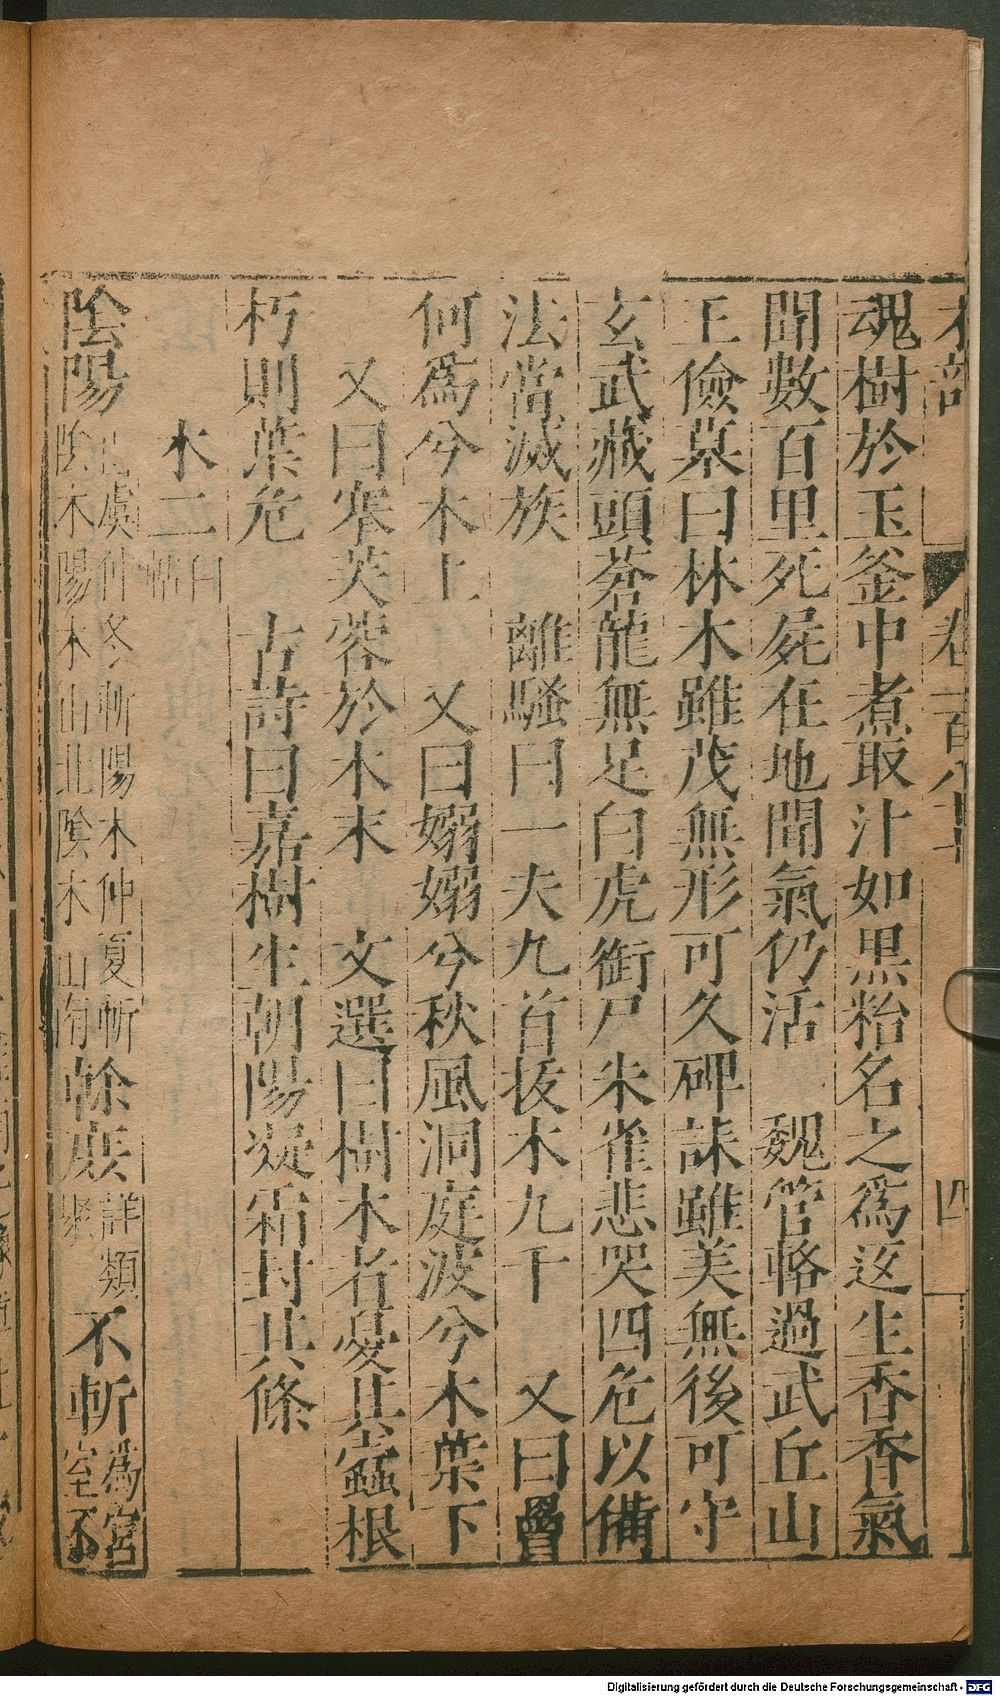 木部 卷一百八十 四
魂樹於玉釜中煮取汁如黑粘名之爲返生香香氣
聞數百里死屍在地聞氣仍活 魏管輅過武丘山
王儉墓曰林木雖茂無形可久碑誄雖美無後可守
玄武藏頭蒼龍無足白虎銜尸朱雀悲哭四危以備
法當滅族 離騷曰一夫九首拔木九千 又曰罾
何爲兮木上 又曰嫋嫋兮秋風洞庭波兮木葉下
又曰搴芙蓉於木末 文選曰樹木者憂其蠹根
朽則葉危 古詩曰嘉樹生朝陽凝霜封其條
木二
白帖
陰陽
山虞仲冬斬陽木仲夏斬
陰木陽木山北陰木山南
榦
詳類
聚
不斬
爲宮
室不
Digitalisierung gefördert durch die Deutsche Forschungsgemeinschaft - DFG